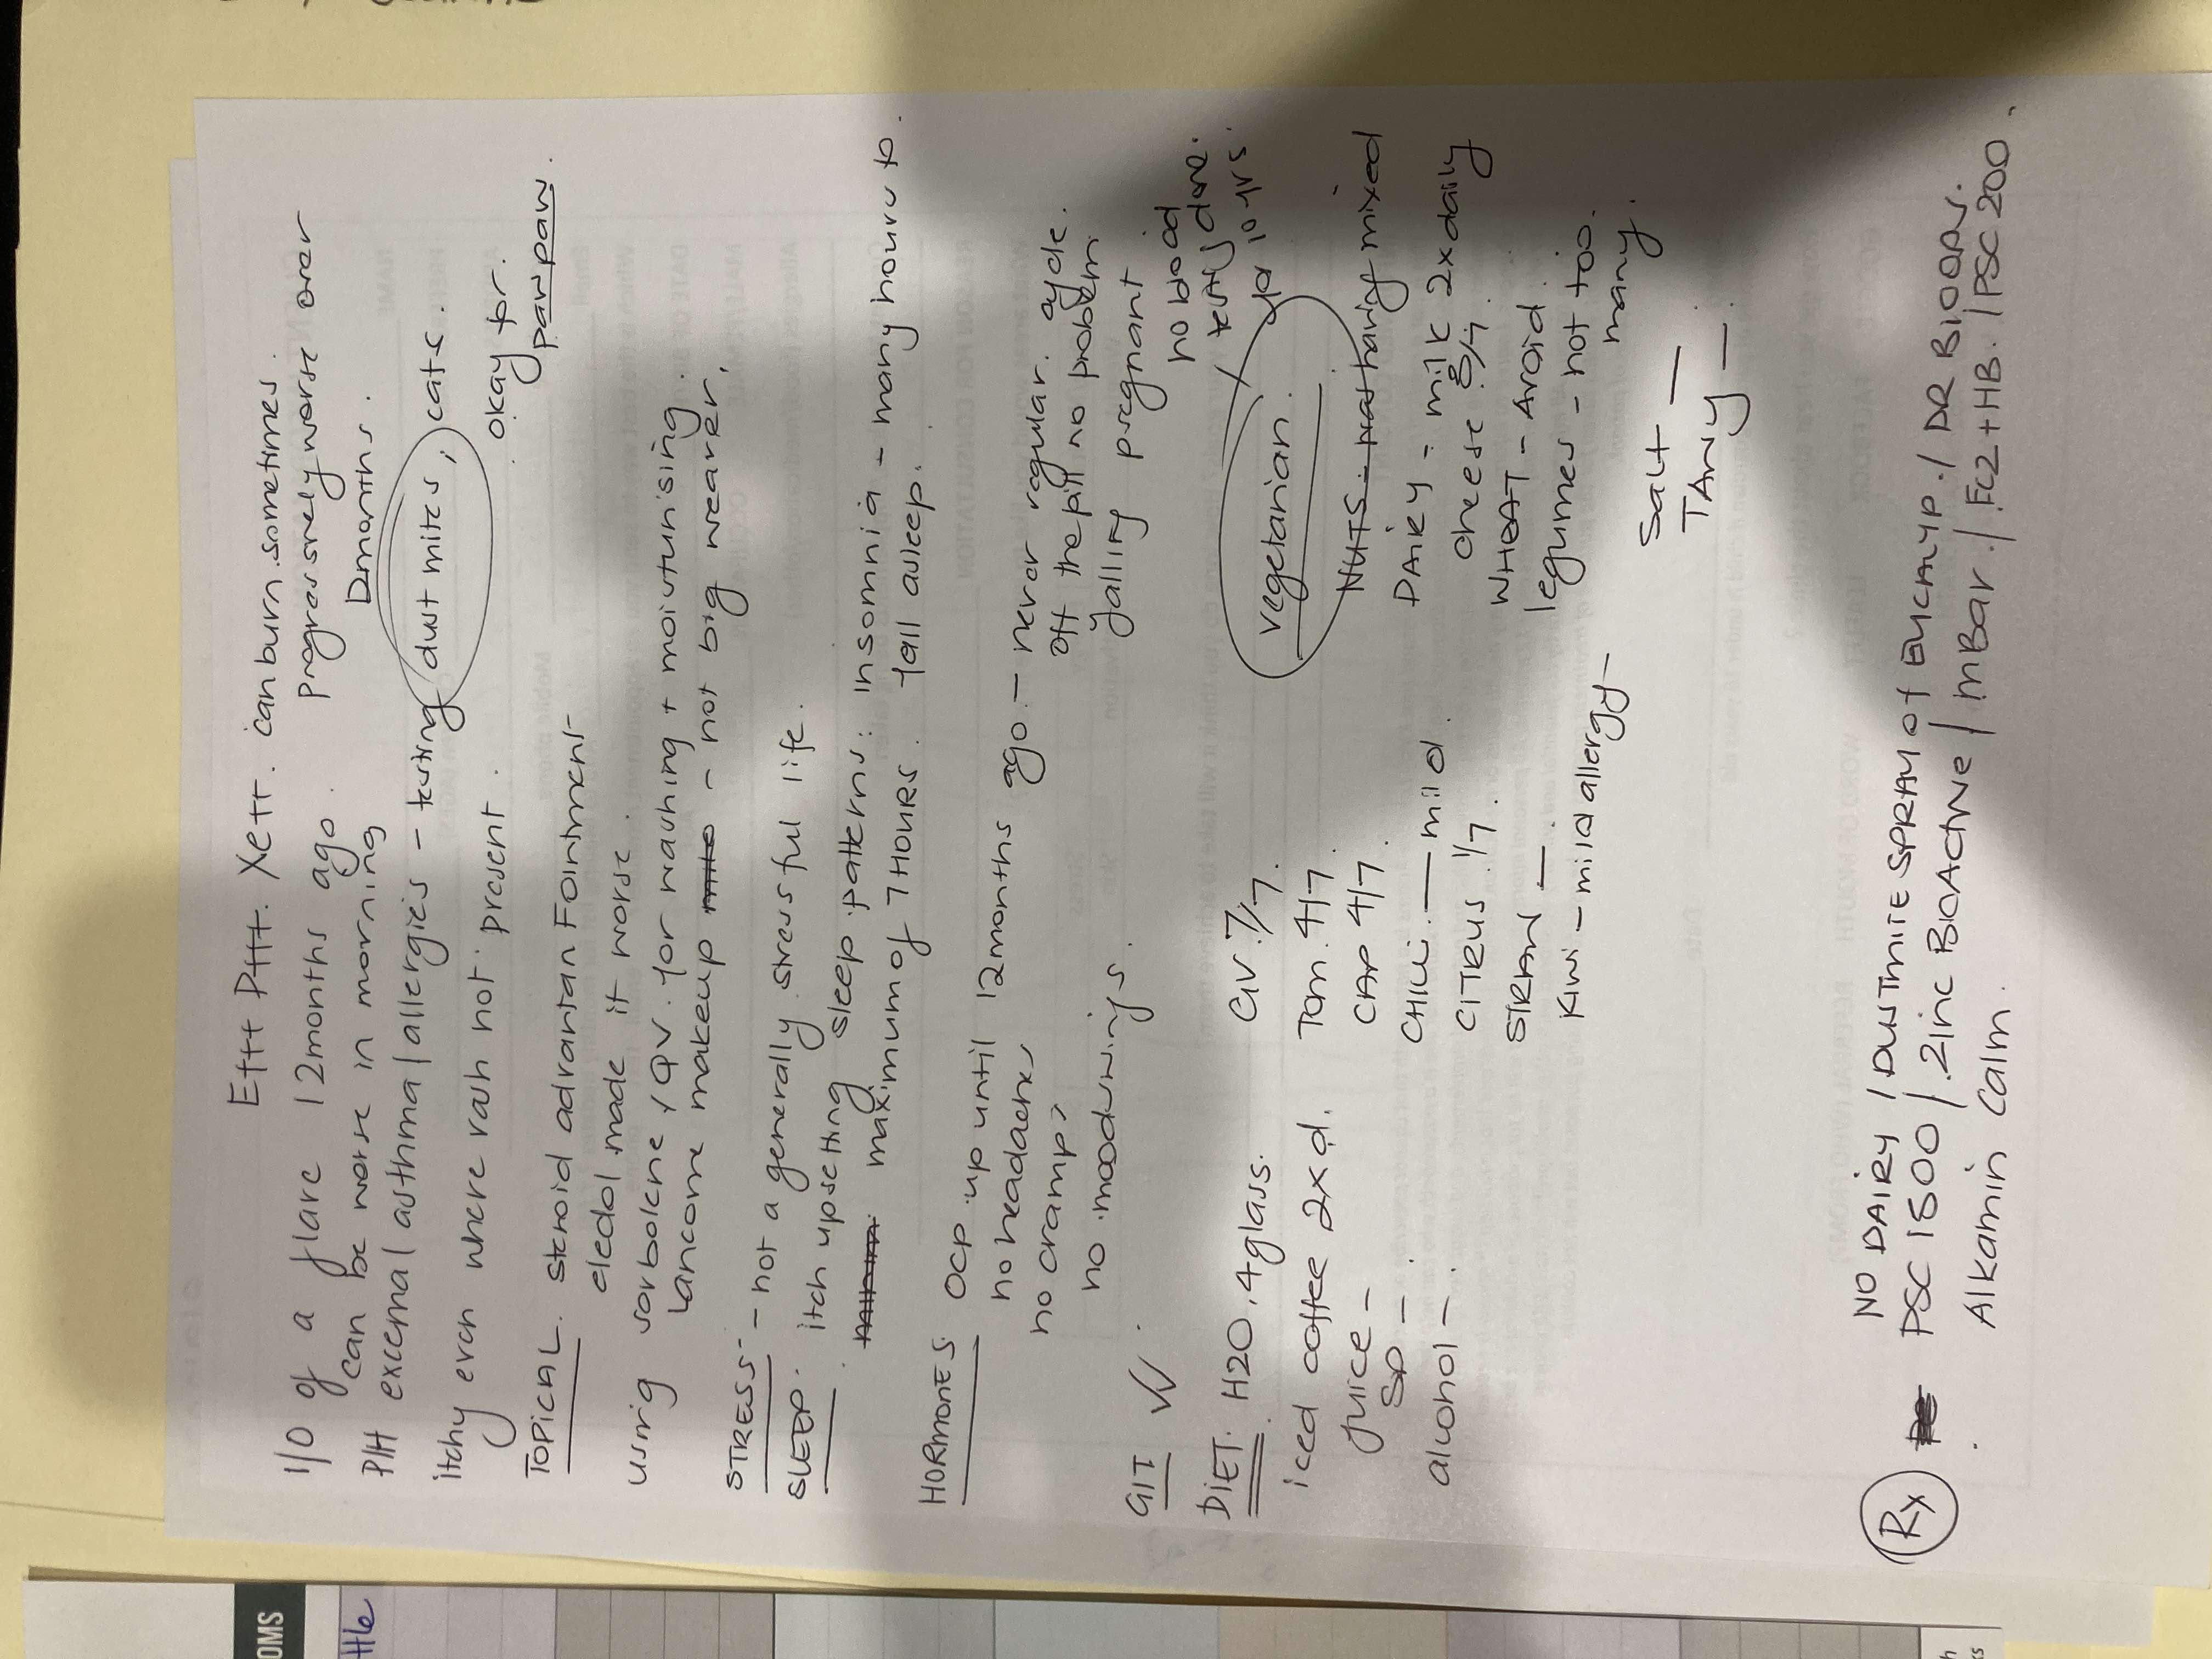 E+++ P+++. X2++. can burn sometimes.
1/0 of a flare 12 months ago. progressively worse over
can be worse in morning 12months.
P/H eczema / asthma / allergies - testing dust mites, cats.
itchy even where rash not present. okay for. pawpaw.
TOPICAL. steroid advantan Fointment
eledol made it worse.
using sorbolene / QV. for washing + moisturising.
lancome makeup - not big wearer.
STRESS - not a generally stressful life.
SLEEP. itch upsetting sleep patterns: insomnia - many hours to
maximum of 7 HOURS. fall asleep.
HORMONES OCP up until 12months ago - never regular cycle.
no headaches off the pill no problem
no cramps falling pregnant
no moodswings.
GIT ✓✓ no blood tests done.
DIET. H2O. 4 glass. GV. 7/7. vegetarian. 10 yrs.
iced coffee 2xd. Tom. 4/7. NUTS - having mixed
juice - CAP 4/7. DAIRY = milk 2x daily
SD - CHILLI - mild. cheese
alcohol - CITRUS 1/7. WHEAT - Avoid.
legumes - not too many.
Kiwi - mild allergy -
Salt -
TANGY -
NO DAIRY / DUSTMITE SPRAY of EUCALYP. / DR BIOOPS.
Rx PSC 1500 / Zinc BioActive / MBar. / Fc2+HB. / PSC 200.
Alkamin Calm.
OMS